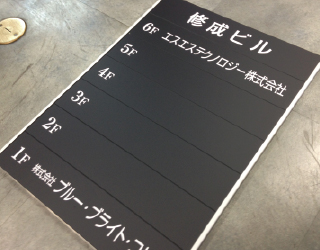 修成ビル
6F エスエステクノロジー株式会社
5F
4F
3F
2F
1F 株式会社 ブルー・ブライト・